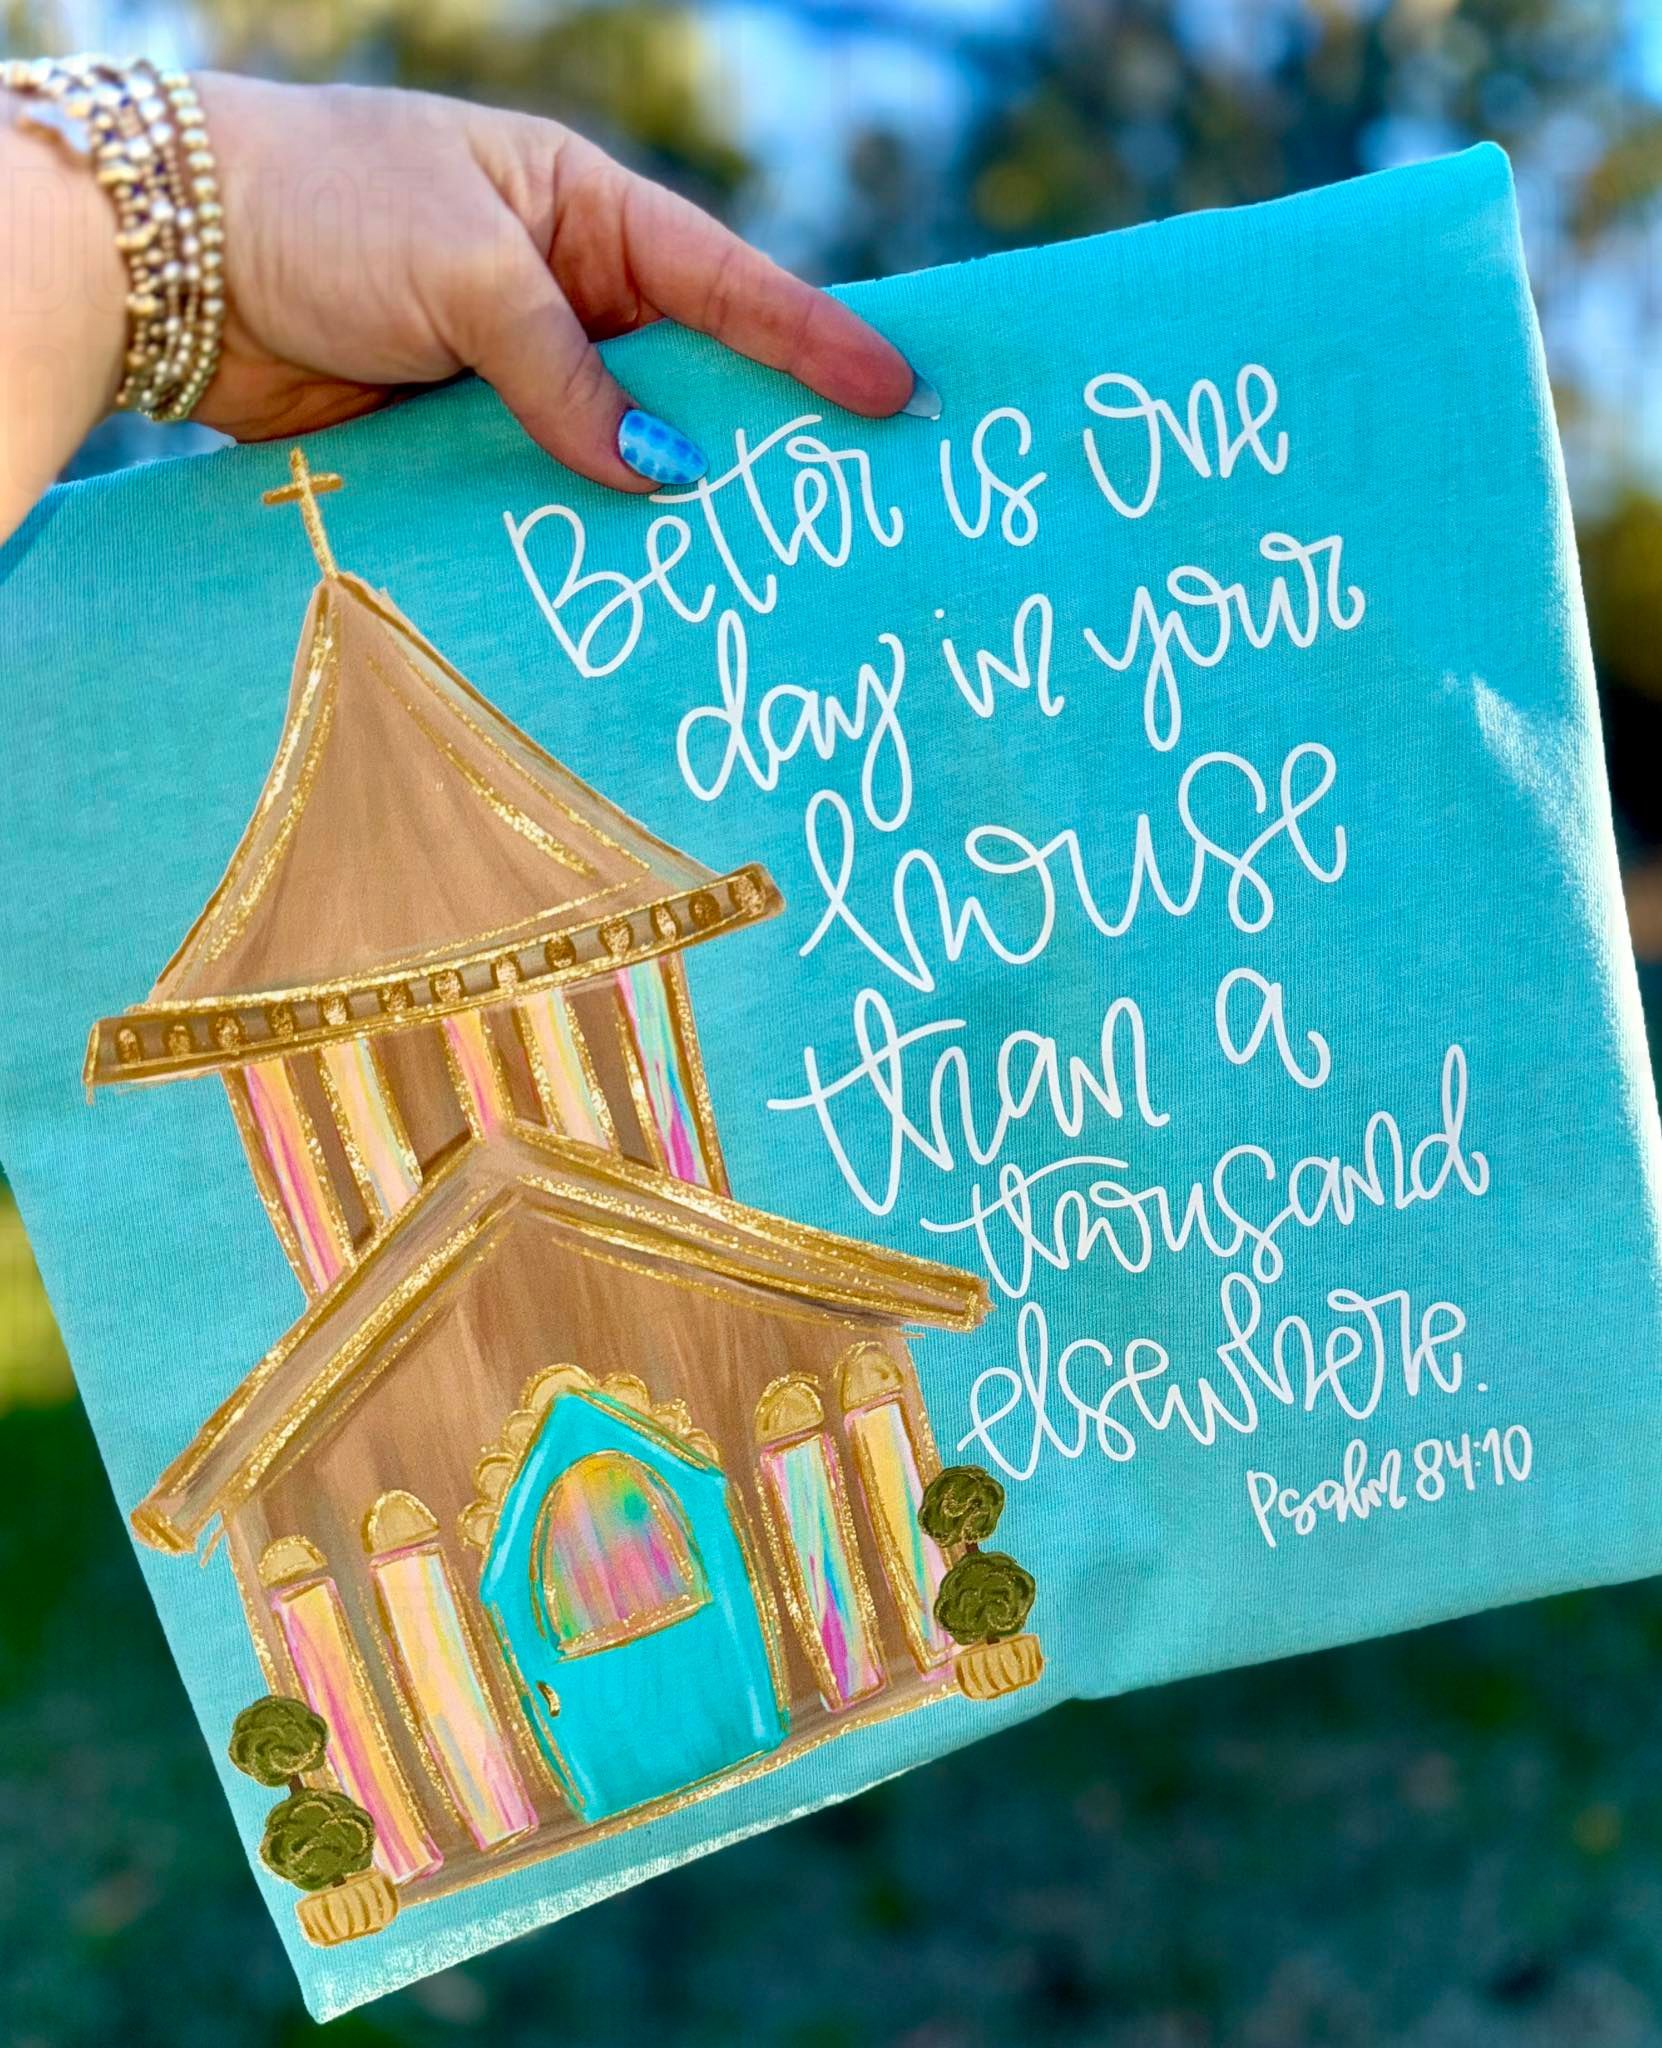 Better is one
day in your
house
than a
thousand
elsewhere.
Psalm 84:10